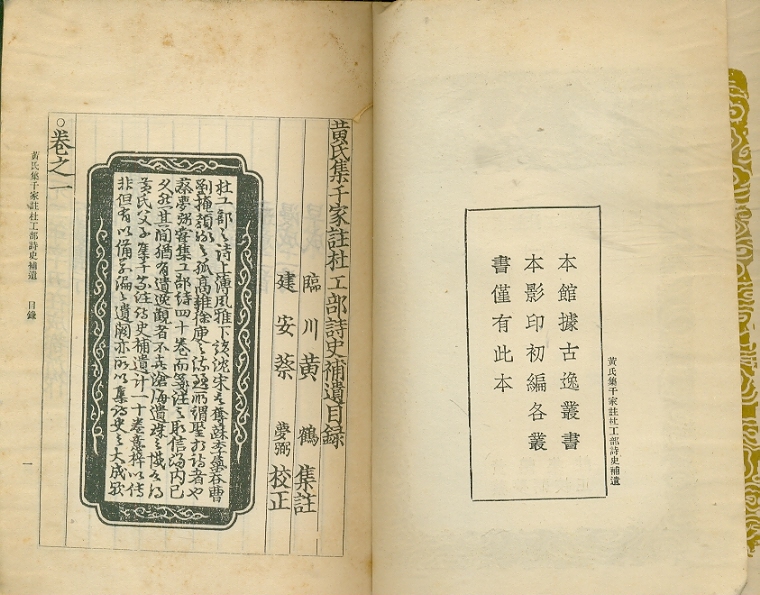 黃氏集千家註杜工部詩史補遺
本館據古逸叢書
本影印初編各叢
書僅有此本
黃氏集千家註杜工部詩史補遺目録
臨川黃鶴集註
建安蔡夢弼校正
杜工部之詩上薄風雅下該沈宋言奪蘇李氣吞曹
劉掩顏謝之孤高雜徐庾之流麗所謂聖於詩者也
蔡夢弼嘗集工部詩四十卷而箋注之取信海內已
久然其間猶有遺逸觀者不無滄海遺珠之憾
黃氏父子集千家注詩史補遺計一十卷
非但有以備前編之遺闕亦所以集詩史之大成歟
○卷之一
黃氏集千家註杜工部詩史補遺　目錄
一